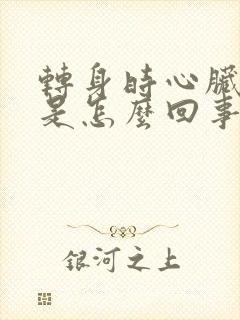 轉身時心臟
是怎麼回事
銀河之上